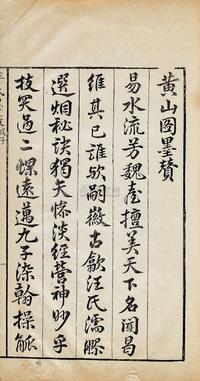 黄山图墨賛
易水流芳魏臺擅美天下名闻曷
維其已誰欤嗣徽古歙汪氏濡螺
選烟秘訣獨矢惨淡經營神妙乎
技冥過二螺遠邁九子染翰操觚